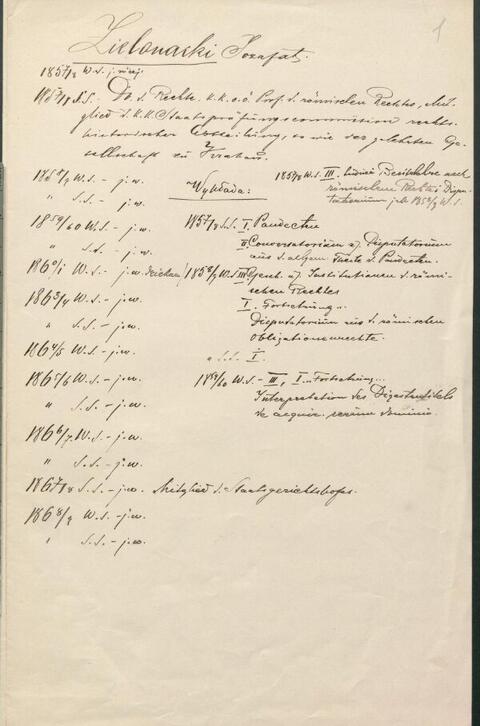 1
Zielonacki Jozafat.
1857/8 W.S. j. niżej
1857/8 S.S. Dr. d. Rechte, k.k. o.ö. Prof. d. römischen Rechtes, Mit-
glied d. k.k. Staatsprüfungscommission rechts-
historischer Abtheilung, so wie der gelehrten Ge-
sellschaft zu Krakau.
1858/9 W.S. – j.w.
" S.S. – j.w.
1859/60 W.S. – j.w.
" S.S. – j.w.
1860/1 W.S. – j.w.
1863/4 W.S. – j.w.
" S.S. – j.w.
1864/5 W.S. – j.w.
1865/6 W.S. – j.w.
" S.S. – j.w.
1866/7 W.S. – j.w.
" S.S. – j.w.
1867/8 S.S. – j.w. Mitglied d. Staatsgerichtshofes.
1868/9 W.S. – j.w.
" S.S. – j.w.
Wykłada:
1857/8 W.S. III. dieselbe nach
römischem Rechte; Dispu-
tatorium jak 1858/9 W.S.
1857/8 S.S. I. Pandecten
II. Conversatorium u. Disputatorium
aus d. allgem. Theile d. Pandecten.
1858/9 W.S. III Gesch. u. Institutionen d. römi-
schen Rechtes
I. Fortsetzung "
Disputatorium aus d. römischen
Obligationenrechte.
" S.S. I.
1859/60 W.S. – III, I – Fortsetzung...
Interpretation des Digestentitels
de acquir. rerum dominio.